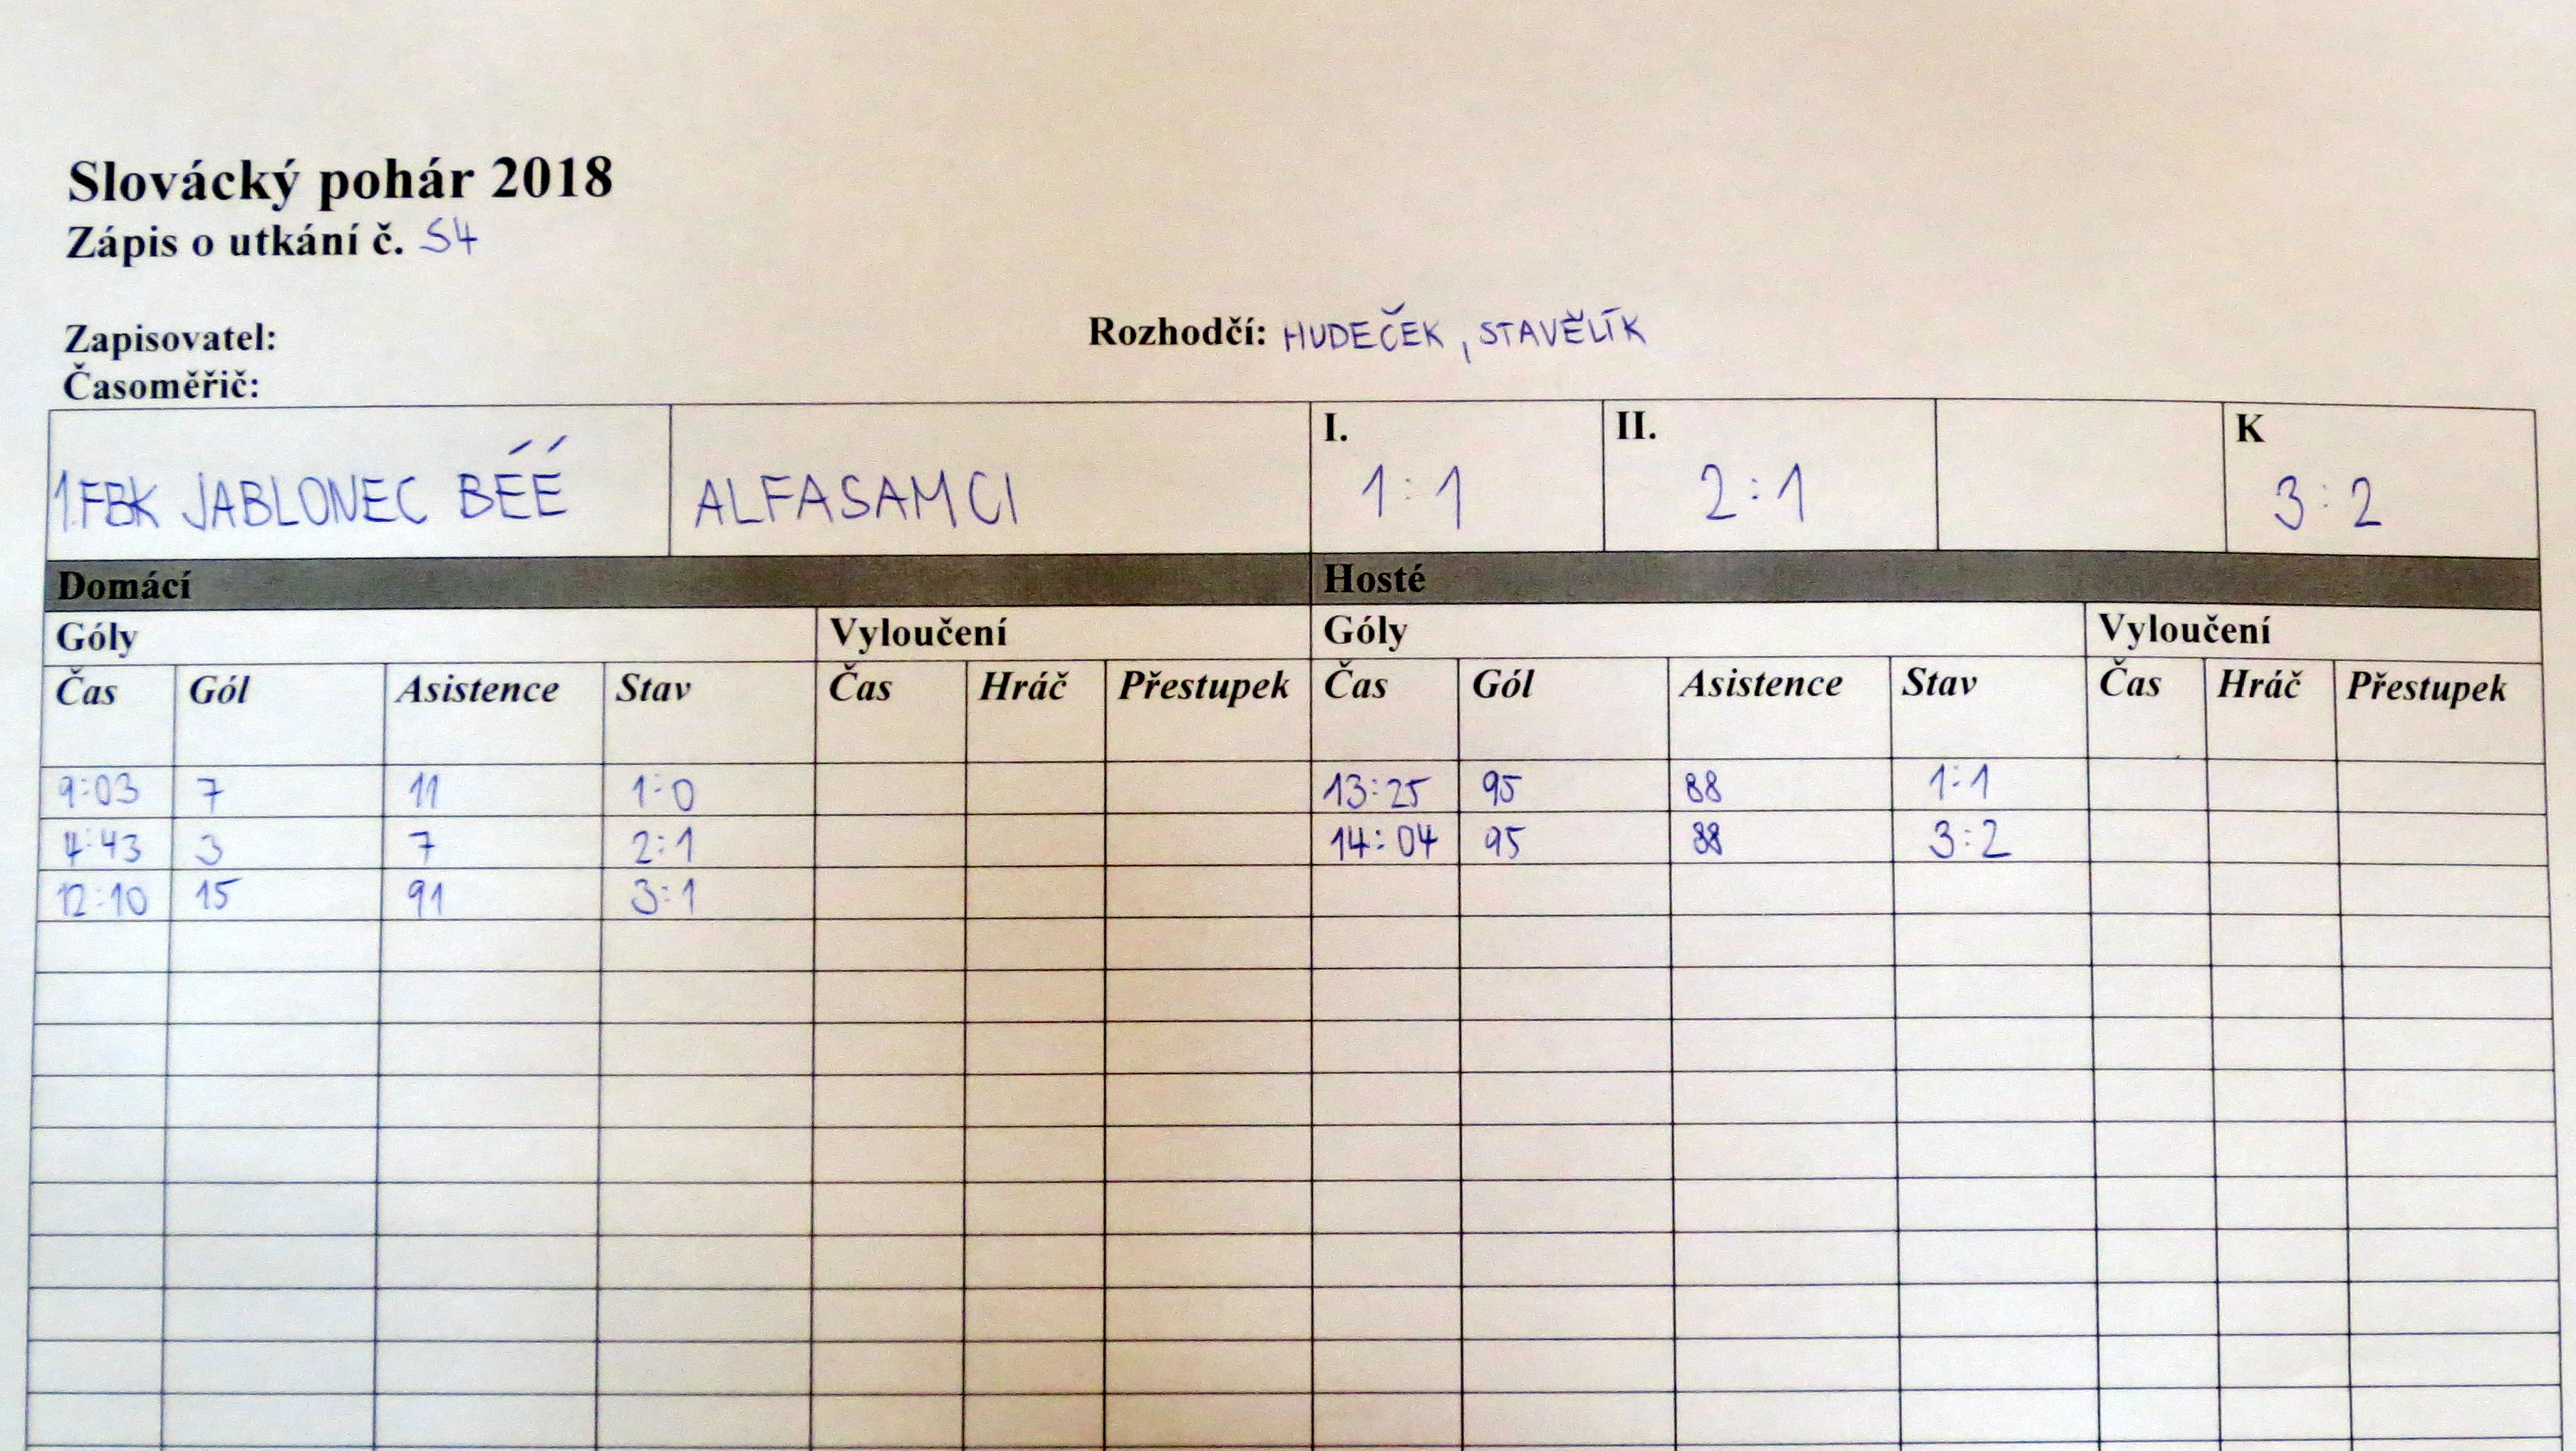 Slovácký pohár 2018
Zápis o utkání č. S4
Zapisovatel:
Rozhodčí: HUDEČEK, STAVĚLÍK
Časoměřič:
1.FBK JABLONEC BÉÉ ALFASAMCI I. 1:1 II. 2:1 K 3:2
Domácí Hosté
Góly Vyloučení Góly Vyloučení
Čas Gól Asistence Stav Čas Hráč Přestupek Čas Gól Asistence Stav Čas Hráč Přestupek
9:03 7 11 1:0 13:25 95 88 1:1
4:43 3 7 2:1 14:04 95 88 3:2
12:10 15 91 3:1